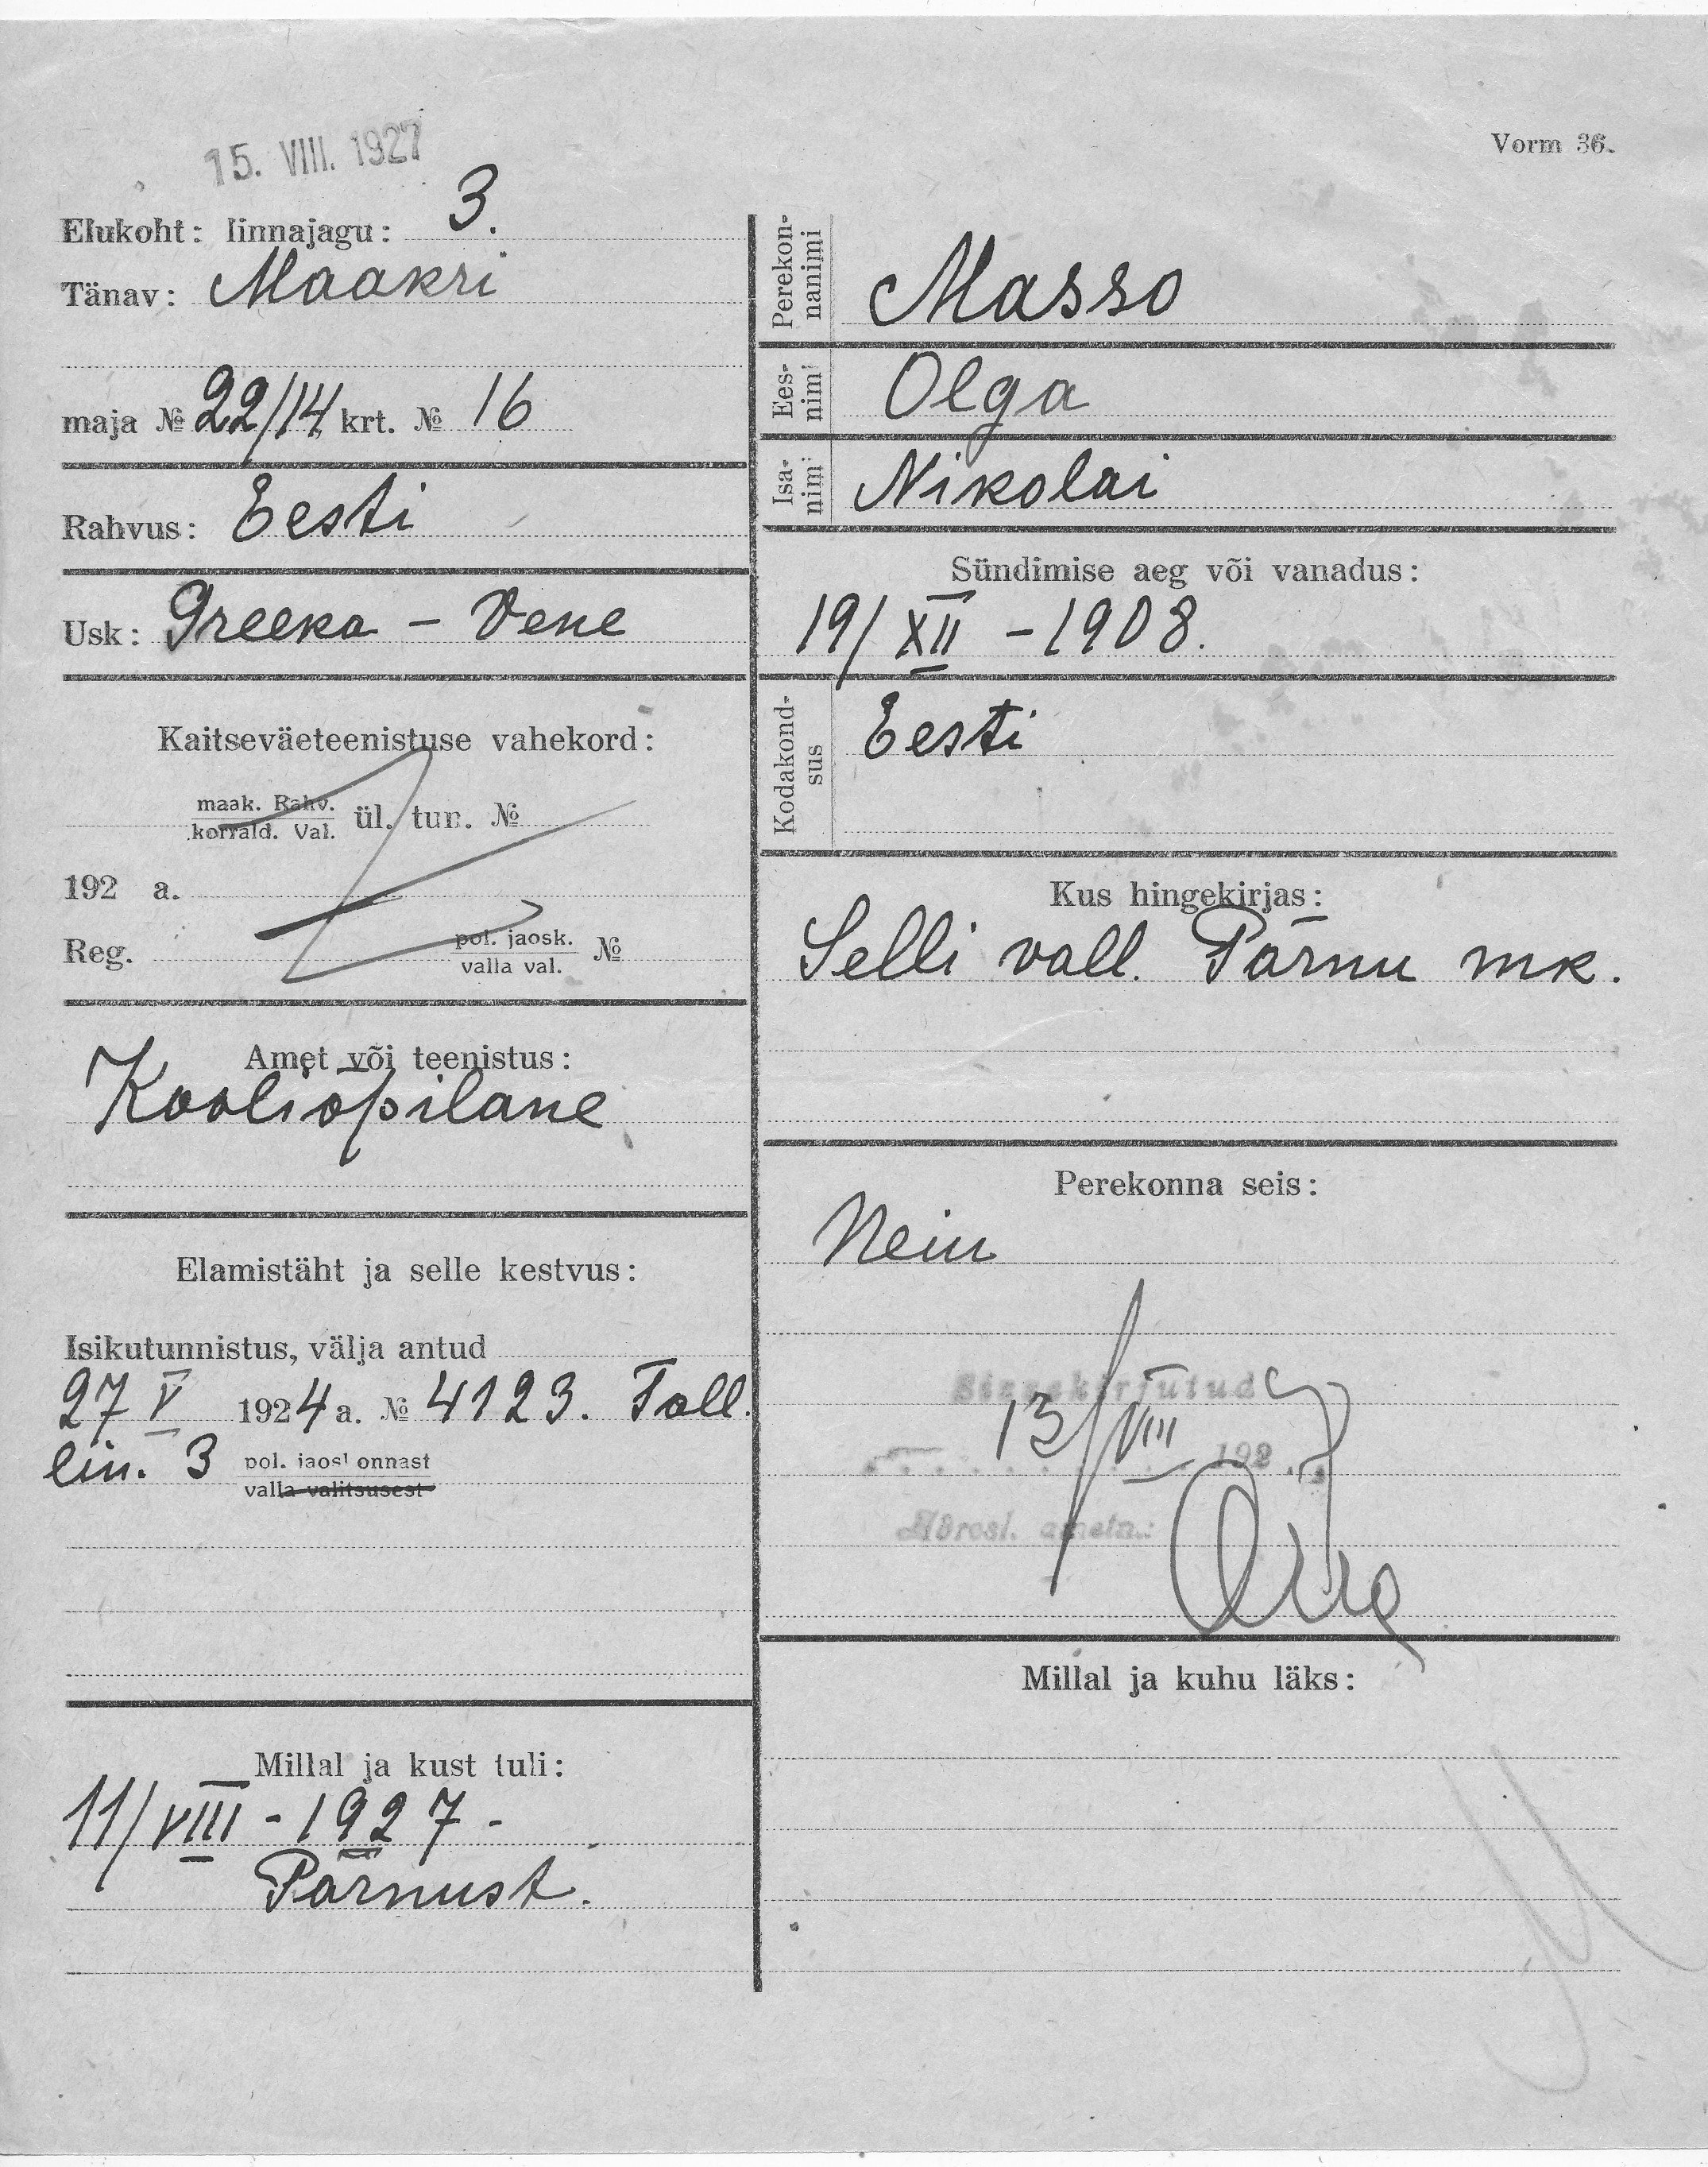 15. VIII. 1927
Vorm 36.
Elukoht: linnajagu: 3.
Tänav: Maakri
maja № 22/14 krt. № 16
Rahvus: Eesti
Usk: Greeka - Vene
Kaitseväeteenistuse vahekord:
maak. Rahv.
korrald. Val. ül. tun. №
192 a.
Reg. pol. jaosk.
valla val. №
Amet või teenistus:
Kooliõpilane
Elamistäht ja selle kestvus:
Isikutunnistus, välja antud
27 V 1924 a. № 4123. Tall.
lin. 3 pol. jaoskonnast
valla valitsusest
Millal ja kust tuli:
11/VIII - 1927 -
Pärnust.
Perekon-
nanimi Masso
Ees-
nimi Olga
Isa-
nimi Nikolai
Sündimise aeg või vanadus:
19/XII - 1908.
Kodakond-
sus Eesti
Kus hingekirjas:
Selli vall. Pärnu mk.
Perekonna seis:
Neiu
Sissekirjutud
13/VIII 1927
Adresl. ametn.:
Millal ja kuhu läks: